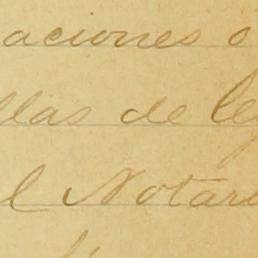 aciones o
llas de le
l Notar